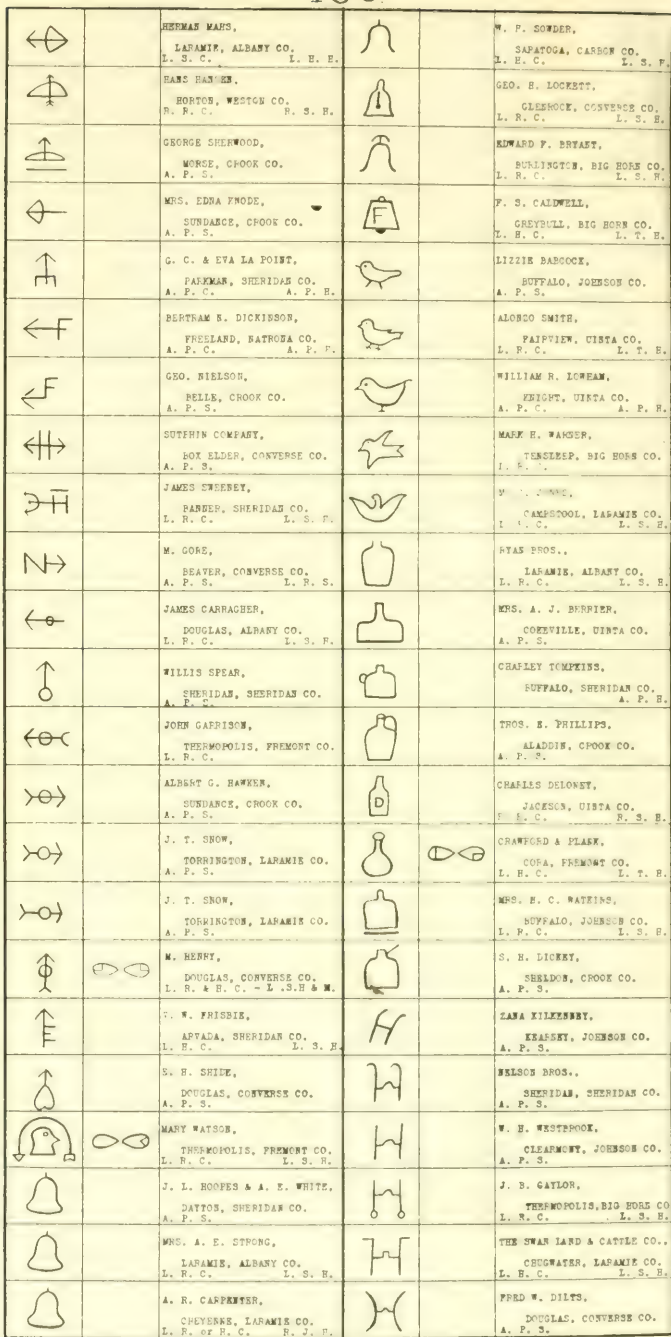 HERMAN MARS,
LARAMIE, ALBANY CO.
L. S. C. L. H. H.
HANS HANSEN,
HORTON, WESTON CO.
R. R. C. R. S. H.
GEORGE SHERWOOD,
MORSE, CROOK CO.
A. P. S.
MRS. EDNA KNODE,
SUNDANCE, CROOK CO.
A. P. S.
G. C. & EVA LA POINT,
PARKMAN, SHERIDAN CO.
A. P. C. A. P. H.
BERTRAM S. DICKINSON,
FREELAND, NATRONA CO.
A. P. C. A. P. H.
GEO. NIELSON,
BELLE, CROOK CO.
A. P. S.
SUTPHIN COMPANY,
BOX ELDER, CONVERSE CO.
A. P. S.
JAMES SWEENEY,
BANNER, SHERIDAN CO.
L. R. C. L. S. H.
M. GORE,
BEAVER, CONVERSE CO.
A. P. S. L. R. S.
JAMES CARRAGHER,
DOUGLAS, ALBANY CO.
L. R. C. L. S. H.
WILLIS SPEAR,
SHERIDAN, SHERIDAN CO.
A. P. S.
JOHN GARRISON,
THERMOPOLIS, FREMONT CO.
L. R. C.
ALBERT G. HAWKEN,
SUNDANCE, CROOK CO.
A. P. S.
J. T. SNOW,
TORRINGTON, LARAMIE CO.
A. P. S.
J. T. SNOW,
TORRINGTON, LARAMIE CO.
A. P. S.
M. HENRY,
DOUGLAS, CONVERSE CO.
L. R. & H. C. - L .S.H & M.
W. FRISBIE,
ARVADA, SHERIDAN CO.
L. H. C. L. S. H.
S. H. SHIDE,
DOUGLAS, CONVERSE CO.
A. P. S.
MARY WATSON,
THERMOPOLIS, FREMONT CO.
L. R. C. L. S. H.
J. L. HOOPES & A. E. WHITE,
DAYTON, SHERIDAN CO.
A. P. S.
MRS. A. E. STRONG,
LARAMIE, ALBANY CO.
L. R. C. L. S. H.
A. R. CARPENTER,
CHEYENNE, LARAMIE CO.
L. R. or H. C. R. J. H.
W. F. SOWDER,
SARATOGA, CARBON CO.
L. H. C. L. S. H.
GEO. H. LOCKETT,
GLENROCK, CONVERSE CO.
L. R. C. L. S. H.
EDWARD F. BRYANT,
BURLINGTON, BIG HORN CO.
L. R. C. L. S. H.
F
F. S. CALDWELL,
GREYBULL, BIG HORN CO.
L. H. C. L. T. H.
LIZZIE BABCOCK,
BUFFALO, JOHNSON CO.
A. P. S.
ALONZO SMITH,
FAIRVIEW, UINTA CO.
L. R. C. L. T. H.
WILLIAM R. LOWHAM,
KNIGHT, UINTA CO.
A. P. C. A. P. H.
MARK H. WARNER,
TENSLEEP, BIG HORN CO.
CAMPSTOOL, LARAMIE CO.
C. L. S. H.
RYAN BROS.,
LARAMIE, ALBANY CO.
L. R. C. L. S. H.
MRS. A. J. BERRIER,
COKEVILLE, UINTA CO.
A. P. S.
CHARLEY TOMPKINS,
BUFFALO, SHERIDAN CO.
A. P. H.
THOS. E. PHILLIPS,
ALADDIN, CROOK CO.
A. P. S.
D
CHARLES DELONEY,
JACKSON, UINTA CO.
R. C. R. S. H.
CRAWFORD & PLANK,
CORA, FREMONT CO.
L. H. C. L. T. H.
MRS. H. C. WATKINS,
BUFFALO, JOHNSON CO.
L. R. C. L. S. H.
S. H. DICKEY,
SHELDON, CROOK CO.
A. P. S.
ZANA KILKENNEY,
KEARNEY, JOHNSON CO.
A. P. S.
NELSON BROS.,
SHERIDAN, SHERIDAN CO.
A. P. S.
W. H. WESTBROOK,
CLEARMONT, JOHNSON CO.
A. P. S.
J. B. GAYLOR,
THERMOPOLIS, BIG HORN CO
L. R. C. L. S. H.
THE SWAN LAND & CATTLE CO.,
CHUGWATER, LARAMIE CO.
L. H. C. L. S. H.
FRED W. DILTS,
DOUGLAS, CONVERSE CO.
A. P. S.